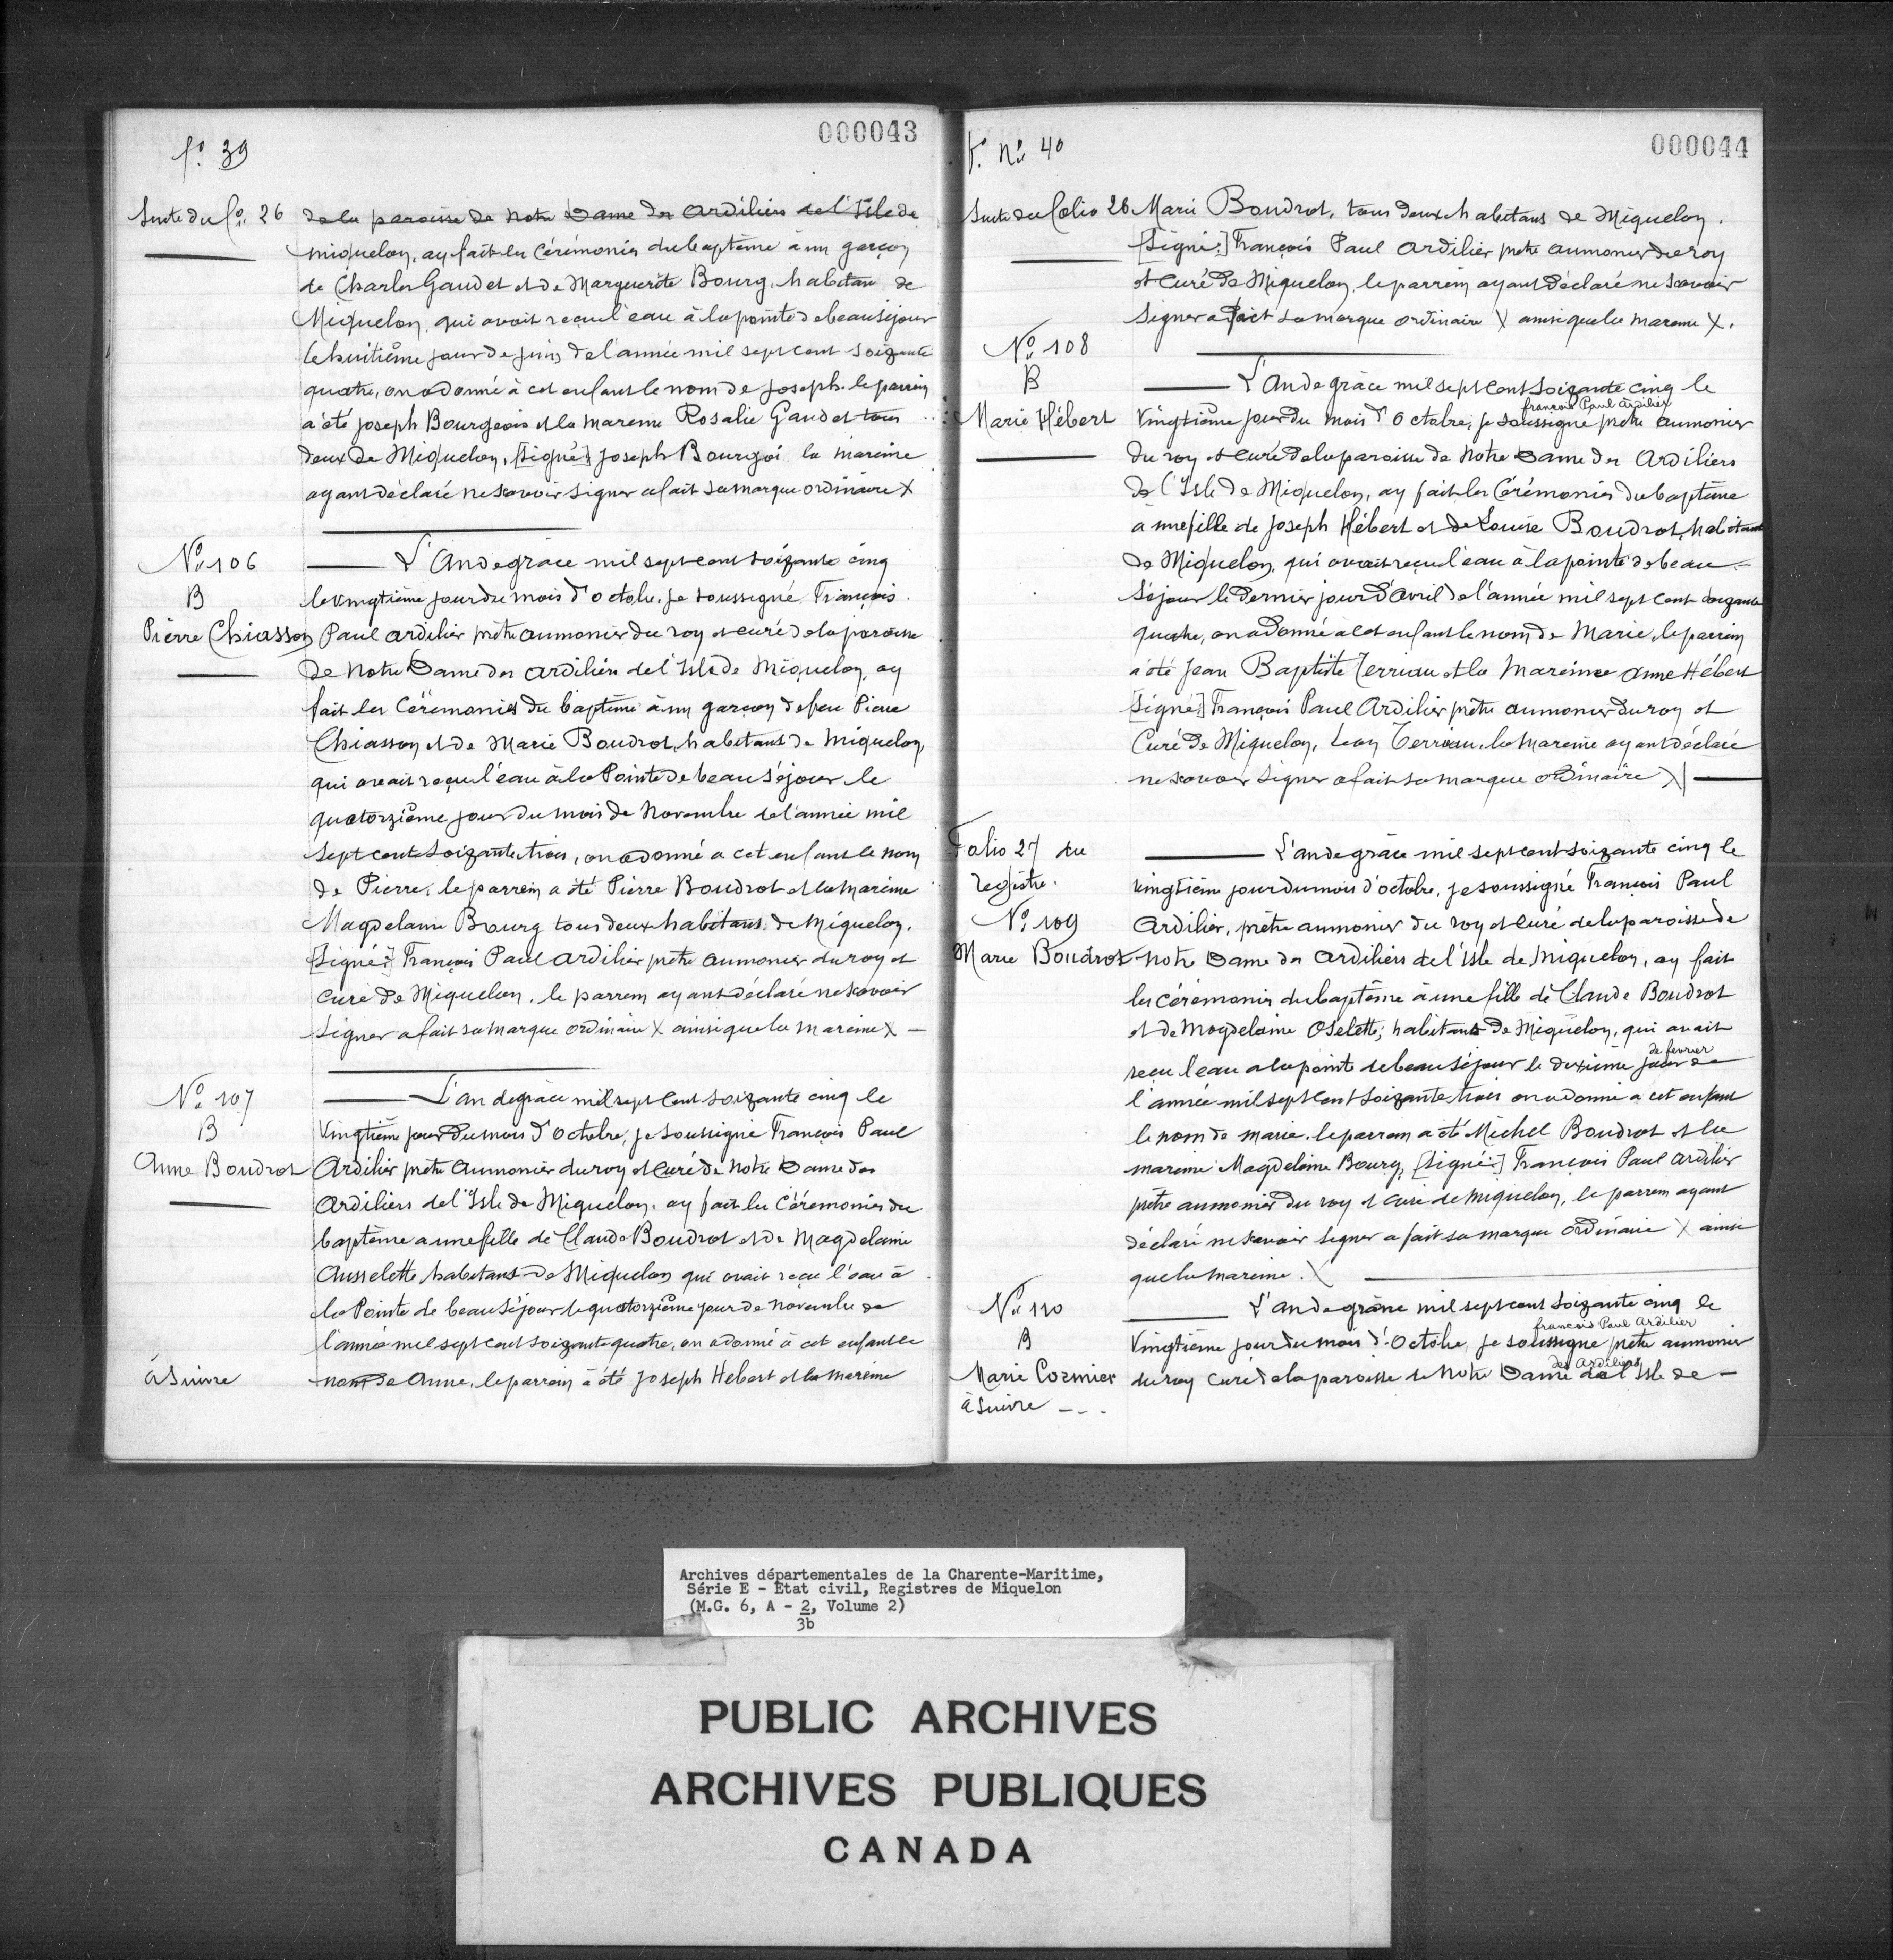 f.º 39
000043
Suite du f.º 26 de la paroisse de Notre Dame des Ardiliers de l'Isle de
Miquelon, ay fait les Cérémonies du baptême à un garçon
de Charles Gaudet et de Marguerite Bourg, habitans de
Miquelon, qui avait reçu l'eau à la pointe de beauséjour
le huitième jour de juin de l'année mil sept cent soizante
quatre, on a donné à cet enfant le nom de Joseph. le parrein
a été Joseph Bourgeois et la mareine Rosalie Gaudet tous
deux de Miquelon, [signé:] Joseph Bourgoi la mareine
ayant déclaré ne savoir signer a fait sa marque ordinaire X
Nº 106
B
Pierre Chiasson
L'An de grâce mil sept cent soizante cinq
le vingtième jour du mois d'octobre, je soussigné François
Paul Ardilier prêtre aumonier du roy et curé de la paroisse
de Notre Dame des Ardiliers de l'Isle de Miquelon, ay
fait les Cérémonies du baptême à un garçon de feu Pierre
Chiasson et de Marie Boudrot, habitans de Miquelon,
qui avait reçu l'eau à la Pointe de beauséjour le
quatorzième jour du mois de Novembre de l'année mil
sept cent soizante trois, on a donné a cet enfant le nom
de Pierre, le parrein a été Pierre Boudrot et la mareine
Magdelaine Bourg tous deux habitans de Miquelon.
[Signé:] François Paul Ardilier prêtre aumonier du roy et
curé de Miquelon, le parrein ayant déclaré ne savoir
signer a fait sa marque ordinaire X ainsi que la mareine X
Nº 107
B
Anne Boudrot
L'an de grâce mil sept cent soizante cinq le
vingtième jour du mois d'Octobre, je soussigné François Paul
Ardilier prêtre aumonier du roy et curé de Notre Dame des
Ardiliers de l'Isle de Miquelon, ay fait les Cérémonies du
baptême a une fille de Claude Boudrot et de Magdelaine
Ausselette habitans de Miquelon qui avait reçu l'eau à
la Pointe de beauséjour le quatorzième jour de novembre de
l'année mil sept cent soizante quatre, on a donné à cet enfant le
à suivre nom de Anne, le parrein a été Joseph Hebert et la mareine
f. Nº 40
000044
Suite du folio 26 Marie Boudrot, tous deux habitans de Miquelon.
[Signé:] François Paul Ardilier prêtre aumonier du roy
et curé de Miquelon, le parrein ayant déclaré ne savoir
signer a fait sa marque ordinaire X ainsi que la mareine X.
Nº 108
B
Marie Hébert
L'An de grâce mil sept cent soizante cinq le
françois Paul Ardilier
vingtième jour du mois d'Octobre, je soussigné prêtre aumonier
du roy et curé de la paroisse de Notre Dame des Ardiliers
de l'Isle de Miquelon, ay fait les Cérémonies du baptême
a une fille de Joseph Hébert et de Louise Boudrot, habitans
de Miquelon, qui avait reçu l'eau à la pointe de beau-
séjour le dernier jour d'avril de l'année mil sept cent soizante
quatre, on a donné a cet enfant le nom de Marie, le parrein
a été Jean Baptiste Terriau et la Mareine Anne Hébert
[Signé:] François Paul Ardilier prêtre aumonier du roy et
Curé de Miquelon, Jean Terriau, la mareine ayant déclaré
ne savoir signer a fait sa marque ordinaire X
Folio 27 du
registre.
Nº 109
Marie Boudrot
L'an de grâce mil sept cent soizante cinq le
vingtième jour du mois d'octobre, je soussigné François Paul
Ardilier, prêtre aumonier du roy et curé de la paroisse de
Notre Dame des Ardiliers de l'Isle de Miquelon, ay fait
les cérémonies du baptême à une fille de Claude Boudrot
et de Magdelaine Oselette, habitans de Miquelon, qui avait
de fevrier
reçu l'eau a la pointe de beauséjour le dixième jour de
l'année mil sept cent soizante trois on a donné a cet enfant
le nom de marie. le parrein a été Michel Boudrot et la
mareine Magdelaine Bourg, [signé:] François Paul Ardilier
prêtre aumonier du roy et curé de Miquelon, le parrein ayant
déclaré ne savoir signer a fait sa marque ordinaire X ainsi
que la mareine. X
Nº 110
B
Marie Cormier
à suivre ---
L'an de grâce mil sept cent soizante cinq le
françois Paul Ardilier
vingtième jour du mois d'Octobre, je soussigné prêtre aumonier
des Ardiliers
du roy curé de la paroisse de Notre Dame de l'Isle de -
Archives départementales de la Charente-Maritime,
Série E - Etat civil, Registres de Miquelon
(M.G. 6, A - 2, Volume 2)
3b
PUBLIC ARCHIVES
ARCHIVES PUBLIQUES
CANADA